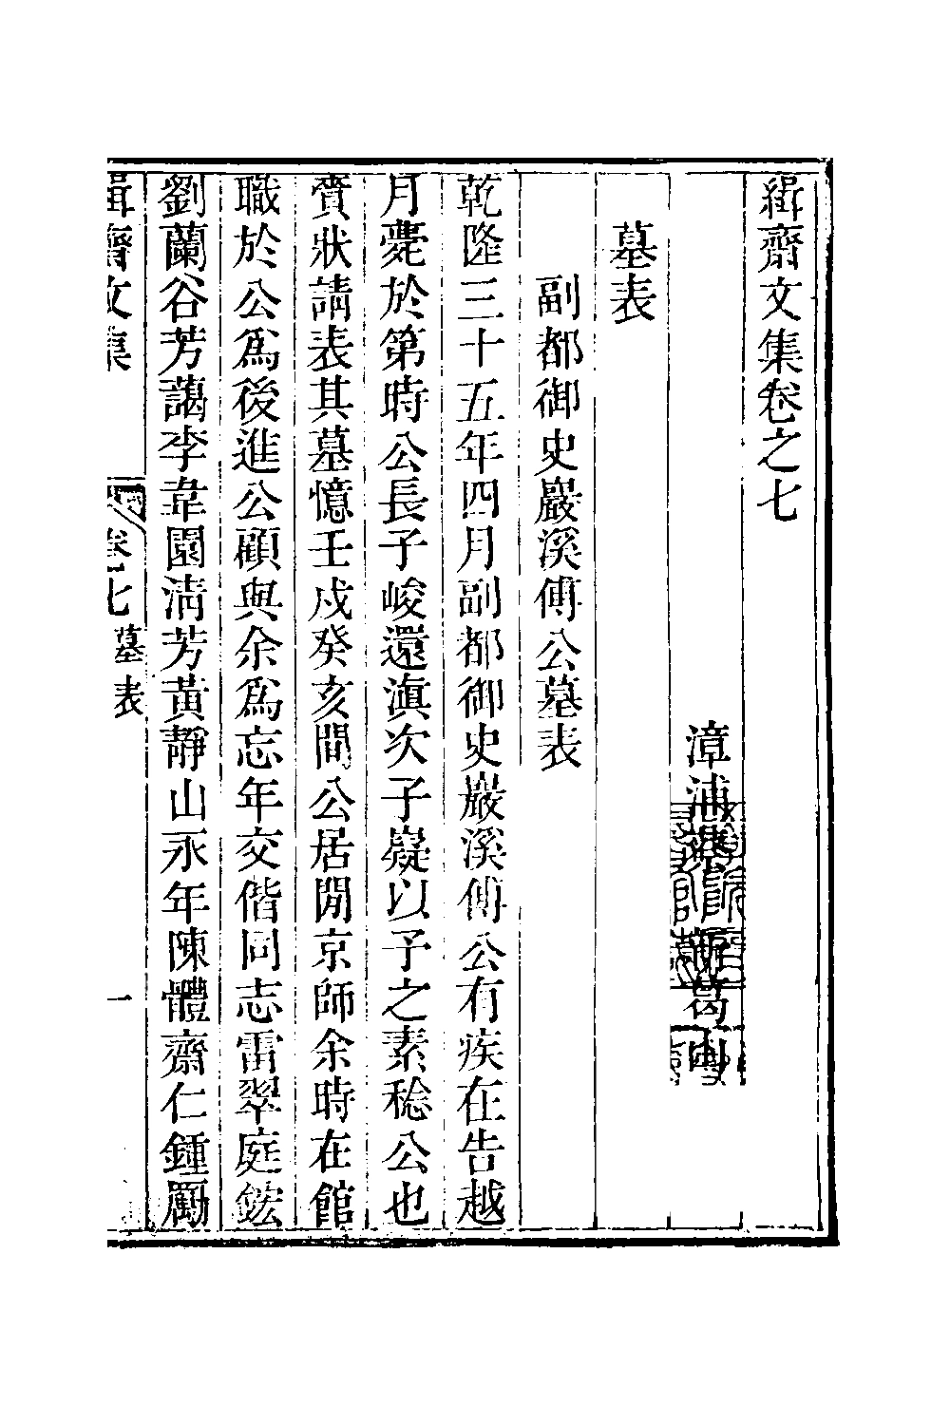 緝齋文集卷之七
漳浦蔡新葛山
墓表
副都御史巖溪傅公墓表
乾隆三十五年四月副都御史巖溪傅公有疾在告越
月薨於第時公長子峻還滇次子嶷以予之素稔公也
賫狀請表其墓憶壬戌癸亥間公居閒京師余時在館
職於公爲後進公顧與余爲忘年交偕同志雷翠庭鋐
劉蘭谷芳藹李韋園清芳黃靜山永年陳體齋仁鍾勵
緝齋文集
卷七墓表
一